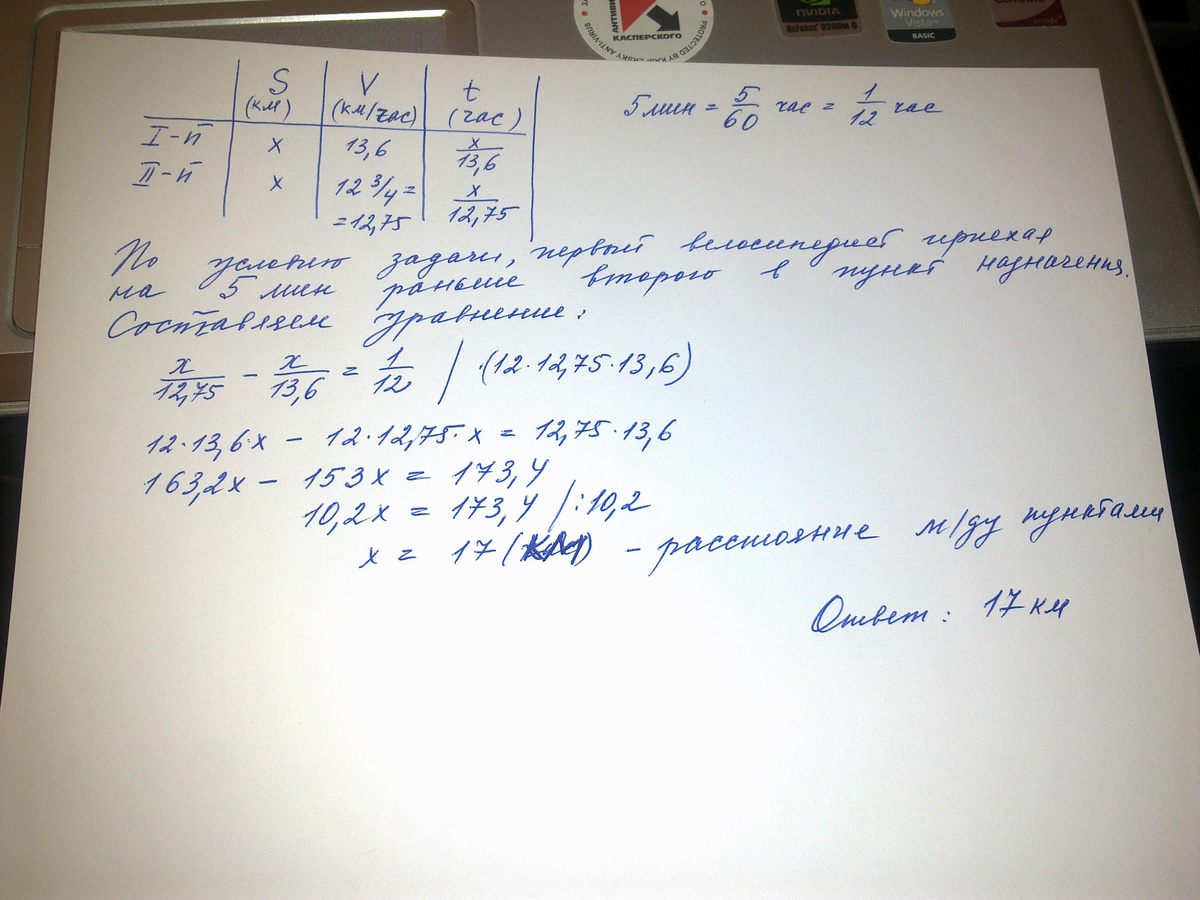 АНТИВИ
КАСПЕРСКОГО
PROTECTED BY KASPERSKY ANTI-VIRUS
NVIDIA
GEFORCE 9300M G
Windows
Vista™
BASIC
inside™
S V t
(км) (км/час) (час)
I-й x 13,6 x/13,6
II-й x 12 3/4 = x/12,75
=12,75
5 мин = 5/60 час = 1/12 час
По условию задачи, первый велосипедист приехал
на 5 мин раньше второго в пункт назначения.
Составляем уравнение:
x/12,75 - x/13,6 = 1/12 | ·(12·12,75·13,6)
12·13,6·x - 12·12,75·x = 12,75·13,6
163,2x - 153x = 173,4
10,2x = 173,4 /:10,2
x = 17 (км) - расстояние м/ду пунктами
Ответ: 17 км